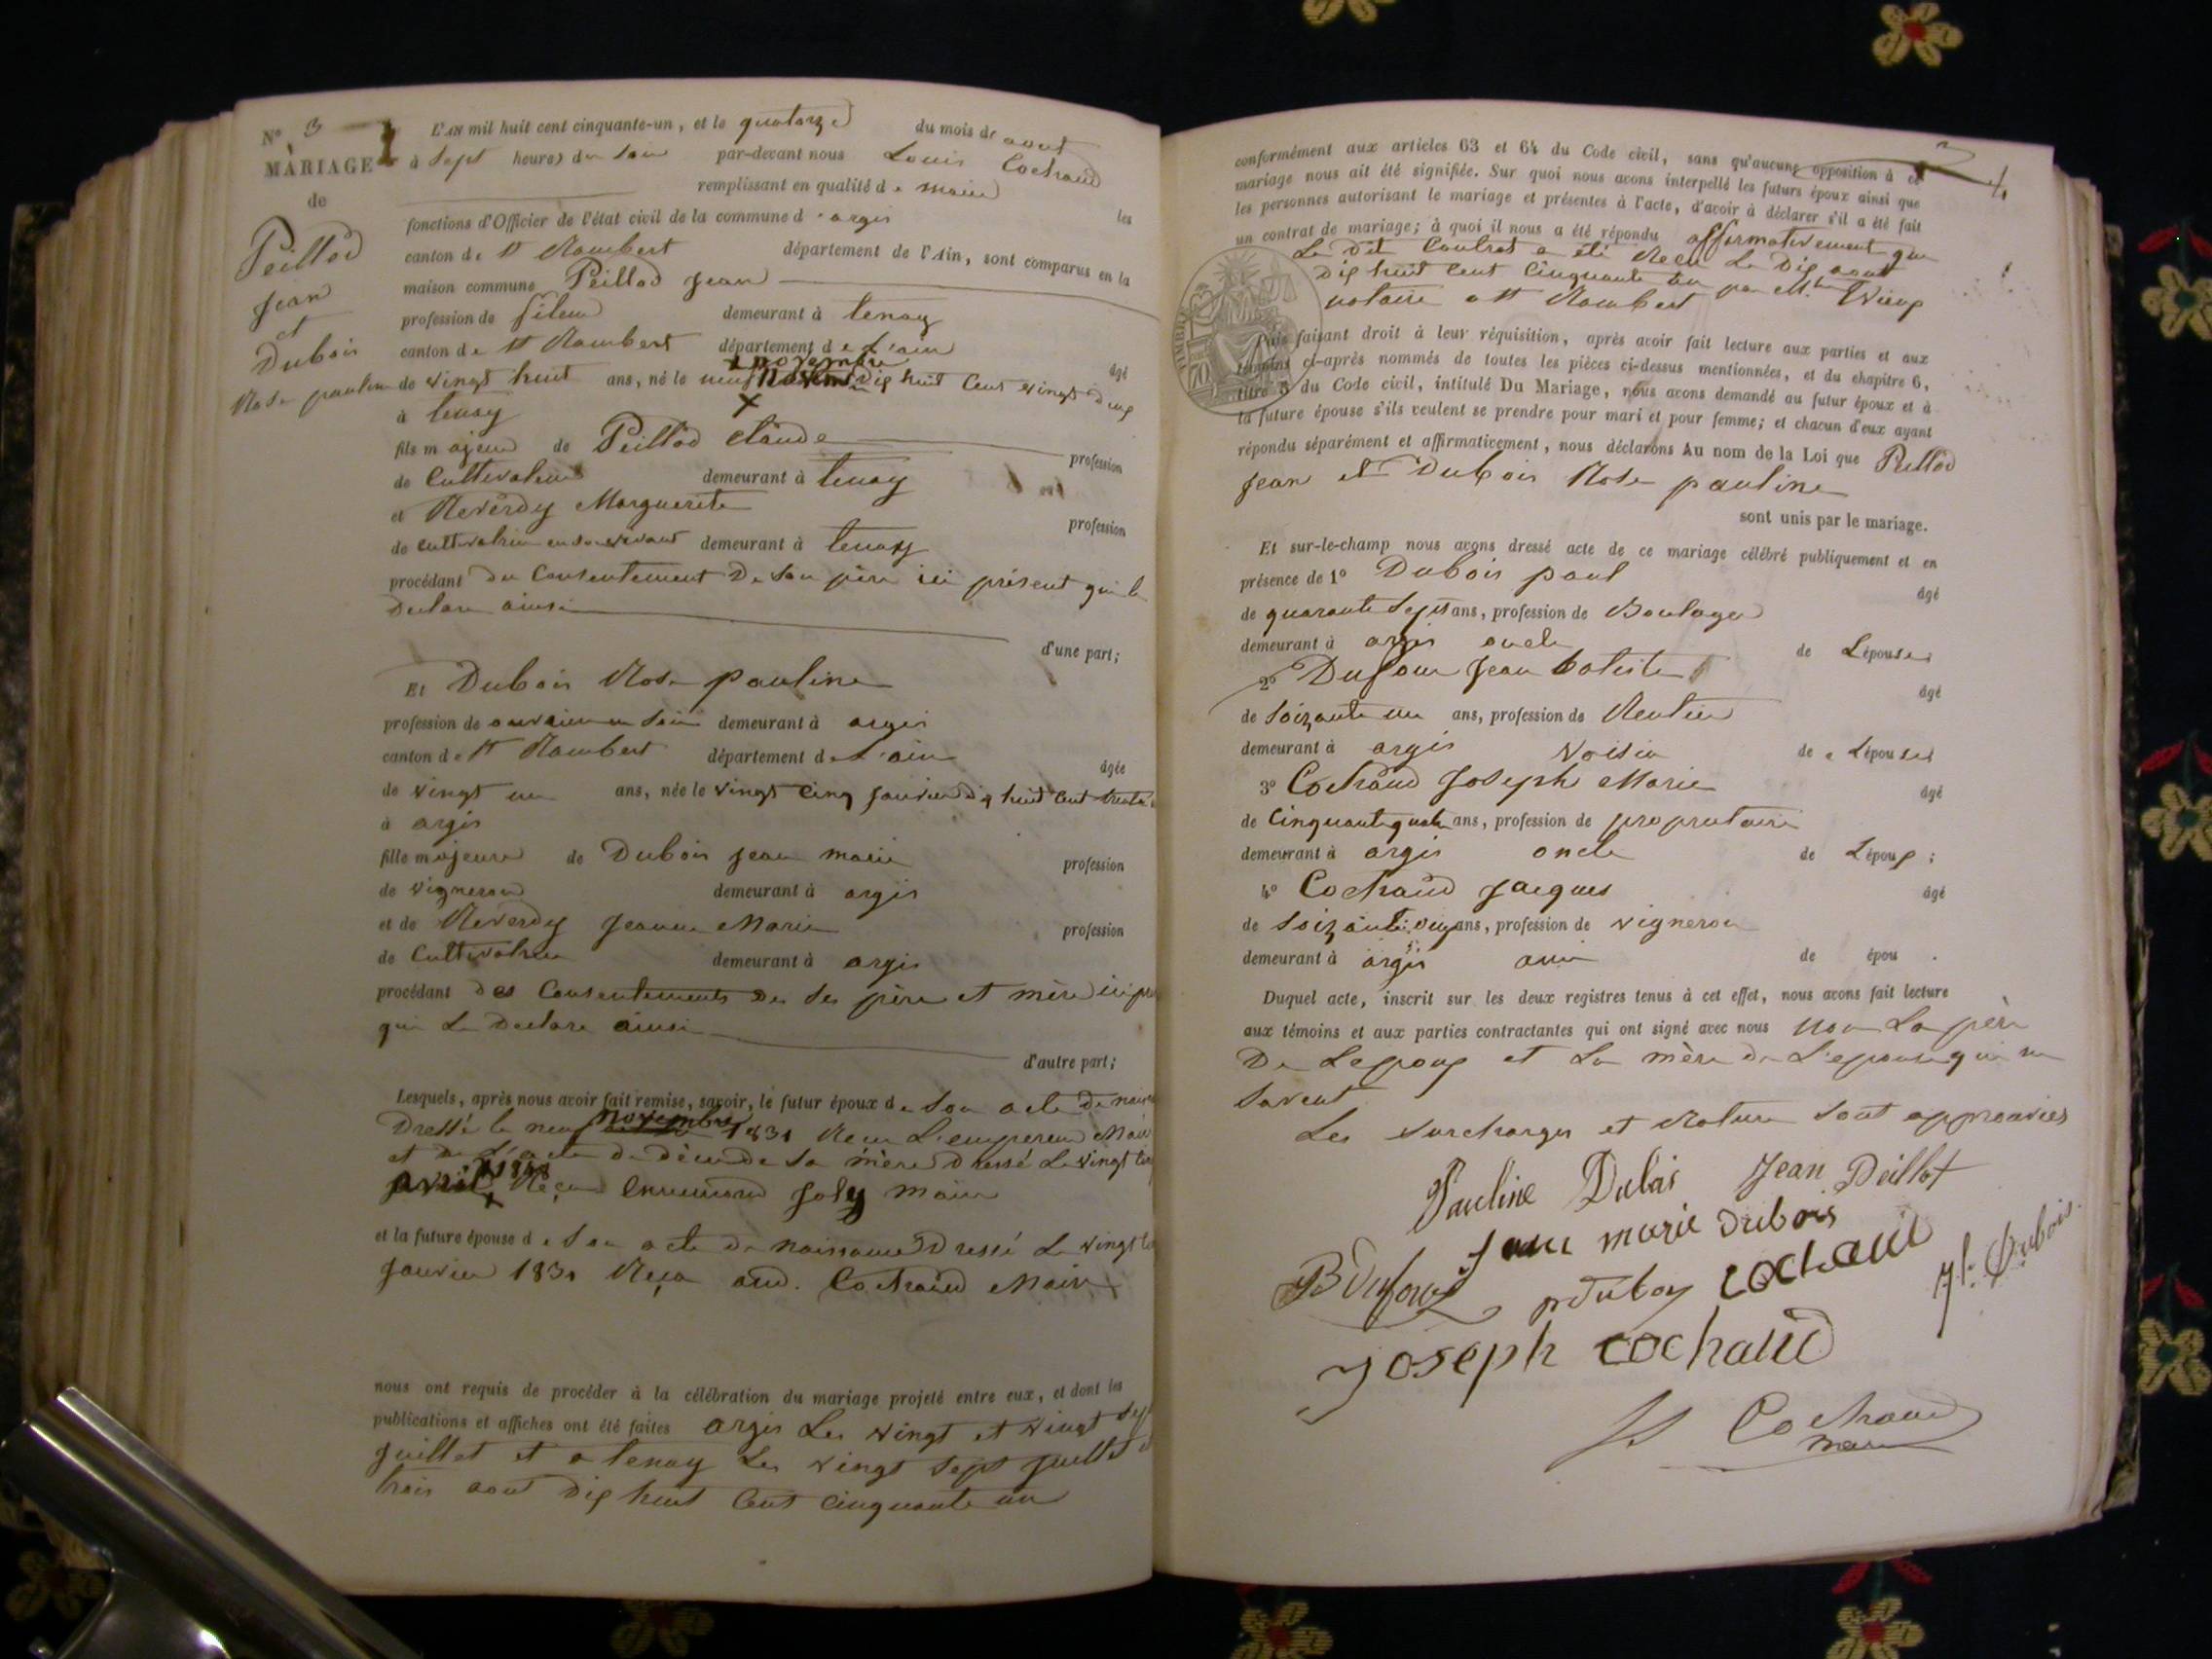 N° 3
MARIAGE
de
Peillod
Jean
et
Dubois
Rose pauline
L'AN mil huit cent cinquante-un, et le quatorze du mois de aout
à Sept heures du Soir par-devant nous Louis Cochaud
remplissant en qualité de maire les
fonctions d'Officier de l'état civil de la commune d'argis
canton de St Rambert département de l'Ain, sont comparus en la
maison commune Peillod Jean
profession de fileur demeurant à tenay
canton de St Rambert département de L'ain âgé
de vingt huit ans, né le neuf novembre dix huit Cent vingt deux
à tenay
fils majeur de Peillod Claude profession
de Cultivateur demeurant à tenay
et Reverdy Marguerite profession
de cultivatrice en son vivant demeurant à tenay
procédant du Consentement De Son père ici présent qui le
Declare ainsi
d'une part;
Et Dubois Rose pauline
profession de ouvriere en Soie demeurant à argis
canton de St Rambert département de L'ain âgée
de vingt un ans, née le vingt cinq Janvier dix huit Cent trente
à argis
fille majeure de Dubois Jean marie profession
de vigneron demeurant à argis
et de Reverdy Jeanne Marie profession
de Cultivatrice demeurant à argis
procédant des Consentements De Ses père et mère ici
qui Le Declare ainsi
d'autre part;
Lesquels, après nous avoir fait remise, savoir, le futur époux de Son acte De
Dressé le neuf novembre 1831 Reçu L'empereur
et De L'acte De décès de Sa mère Dressé Le vingt
avril Reçu Joly maire
et la future épouse de Son acte De naissance Dressé Le vingt
Janvier 1831 Reçu Cochaud Maire
nous ont requis de procéder à la célébration du mariage projeté entre eux, et dont les
publications et affiches ont été faites argis Les vingt et vingt Sept
Juillet et a tenay Les vingt Sept Juillet et
trois aout dix huit Cent Cinquante un
conformément aux articles 63 et 64 du Code civil, sans qu'aucune opposition à ce
mariage nous ait été signifiée. Sur quoi nous avons interpellé les futurs époux ainsi que
les personnes autorisant le mariage et présentes à l'acte, d'avoir à déclarer s'il a été fait
un contrat de mariage; à quoi il nous a été répondu affirmativement que
Le Dit Contrat a été Reçu Le Dix aout
Dix huit Cent Cinquante un par Mtre
notaire a St Rambert
TIMBRE
70
Puis faisant droit à leur réquisition, après avoir fait lecture aux parties et aux
témoins ci-après nommés de toutes les pièces ci-dessus mentionnées, et du chapitre 6,
titre 5 du Code civil, intitulé Du Mariage, nous avons demandé au futur époux et à
la future épouse s'ils veulent se prendre pour mari et pour femme; et chacun d'eux ayant
répondu séparément et affirmativement, nous déclarons Au nom de la Loi que Peillod
Jean et Dubois Rose pauline
sont unis par le mariage.
Et sur-le-champ nous avons dressé acte de ce mariage célébré publiquement et en
présence de 1° Dubois paul âgé
de quarante Sept ans, profession de Boulager
demeurant à argis oncle de Lépouse
2° Dufour Jean batiste âgé
de Soizante un ans, profession de Rentier
demeurant à argis voisin de Lépouse
3° Cochaud Joseph Marie âgé
de Cinquante quatre ans, profession de proprietaire
demeurant à argis oncle de Lépoux;
4° Cochaud Jacques âgé
de Soizante deux ans, profession de vigneron
demeurant à argis ami de épou .
Duquel acte, inscrit sur les deux registres tenus à cet effet, nous avons fait lecture
aux témoins et aux parties contractantes qui ont signé avec nous non Le père
De Lepoux et La mère De L'epouse qui ne
Savent
Les Surcharges et Rature Sont approuvées
Pauline Dubois Jean Peillot
Jean marie Dubois
JB Dufour p dubois cochaud Dubois.
Joseph cochaud
Ls Cochaud
maire